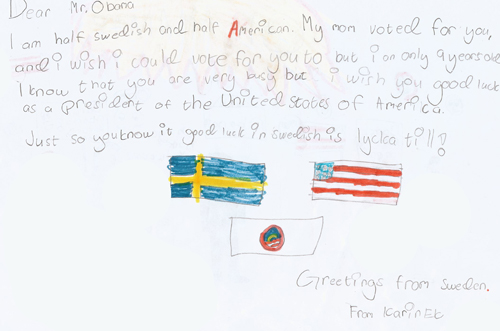 Dear Mr. Obama
I am half swedish and half American. My mom voted for you,
and i wish i could vote for you to but i am only 9 years old
I know that you are very busy but i wish you good luck
as a president of the United states of America.
Just so you know it good luck in swedish is lycka till!
Greetings from sweden.
From Karin Ek